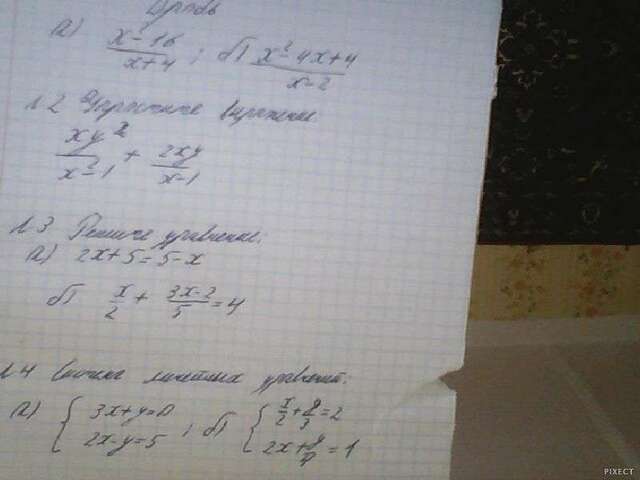 Дробь
а) x²-16/x+4 ; б) x²-4x+4/x-2
№2 Упростите выражение
xy²/x²-1 + 2xy/x-1
№3 Решите уравнение:
а) 2x+5=5-x
б) x/2 + 3x-2/5 = 4
№4 линейных уравнений:
а) { 3x+y=0 ; б) { x/2+y/3=2
2x-y=5 2x+y/4=1
PIXECT